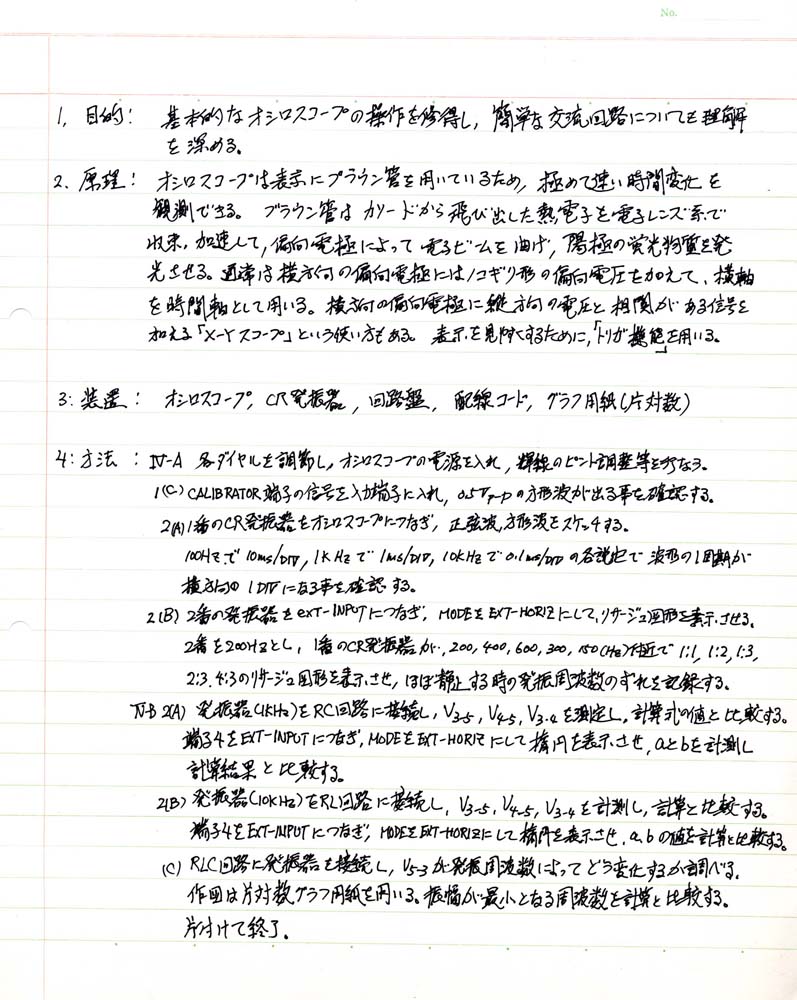 No.
1, 目的: 基本的なオシロスコープの操作を修得し, 簡単な交流回路についても理解
を深める。
2. 原理: オシロスコープは表示にブラウン管を用いているため, 極めて速い時間変化を
観測できる。 ブラウン管はカソードから飛び出した熱電子を電子レンズ系で
収束, 加速して, 偏向電極によって電子ビームを曲げ, 陽極の蛍光物質を発
光させる。通常は横方向の偏向電極にはノコギリ形の偏向電圧を加えて、横軸
を時間軸として用いる。横方向の偏向電極に縦方向の電圧と相関がある信号を
加える「X-Yスコープ」という使い方もある。 表示を見やすくするために,「トリガ機能」を用いる。
3: 装置: オシロスコープ, CR発振器, 回路盤, 配線コード, グラフ用紙(片対数)
4: 方法: IV-A 各ダイヤルを調節し, オシロスコープの電源を入れ, 輝線のピント調整等を行なう。
1(C) CALIBRATOR端子の信号を入力端子に入れ, 0.5Vp-pの方形波が出る事を確認する。
2(A) 1番のCR発振器をオシロスコープにつなぎ, 正弦波, 方形波をスケッチする。
100Hzで10ms/DIV, 1KHzで1ms/DIV, 10KHzで0.1ms/DIVの各設定で波形の1周期が
横方向の1DIVになる事を確認する。
2(B) 2番の発振器をEXT-INPUTにつなぎ, MODEをEXT-HORIZにして, リサージュ図形を表示させる。
2番を200Hzとし, 1番のCR発振器が, 200, 400, 600, 300, 150(Hz)付近で1:1, 1:2, 1:3,
2:3, 4:3のリサージュ図形を表示させ, ほぼ静止する時の発振周波数のずれを記録する。
IV-B 2(A) 発振器(1KHz)をRC回路に接続し, V3-5, V4-5, V3-4を測定し, 計算式の値と比較する。
端子4をEXT-INPUTにつなぎ, MODEをEXT-HORIZにして楕円を表示させ, aとbを計測し
計算結果と比較する。
2(B) 発振器(10KHz)をRL回路に接続し, V3-5, V4-5, V3-4を計測し, 計算と比較する。
端子4をEXT-INPUTにつなぎ, MODEをEXT-HORIZにして楕円を表示させ, a, bの値を計算と比較する。
(C) RLC回路に発振器を接続し, V5-3が発振周波数によってどう変化するか調べる。
作図は片対数グラフ用紙を用いる。振幅が最小となる周波数を計算と比較する。
片付けて終了.